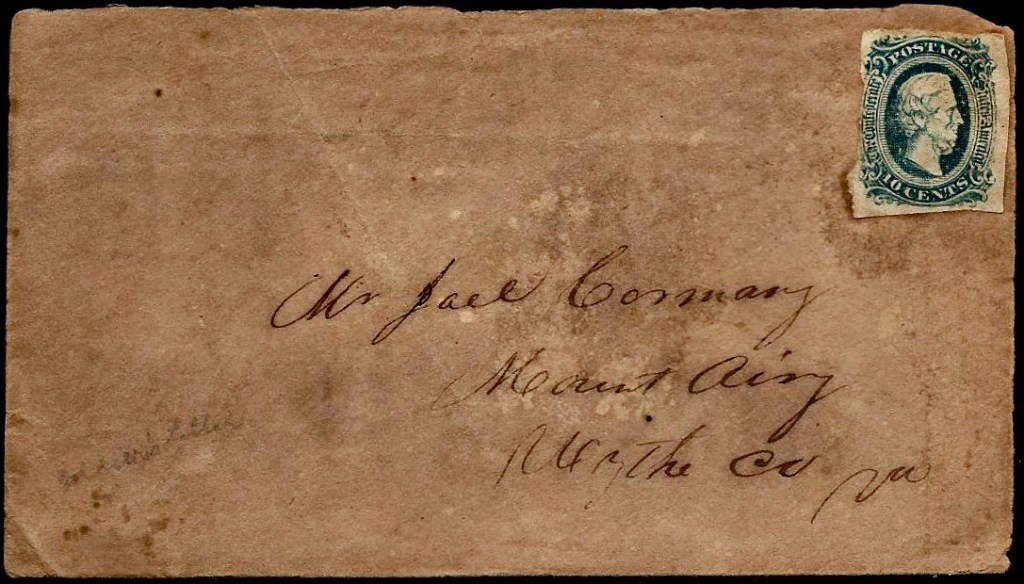 POSTAGE
The Confederate States of America
10 CENTS
Mr Joel Cormany
Mount Airy
Wythe Co Va
letter